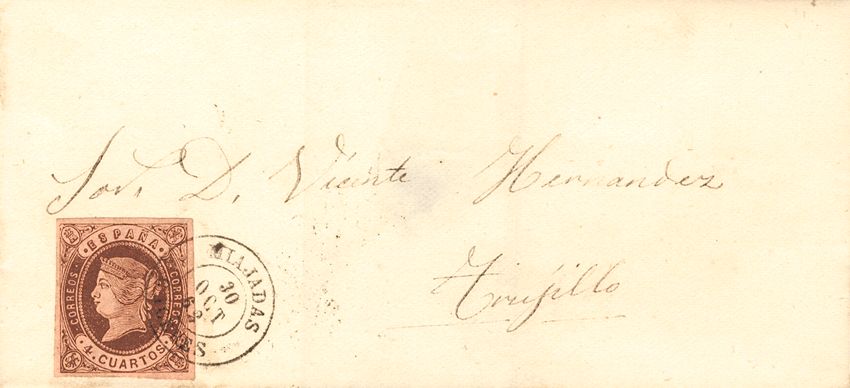 Sor. D. Vicente Hernandez
Trujillo
·ESPAÑA·
CORREOS
CORREOS
4·CUARTOS·
MIAJADAS
30
OCT
CACERES